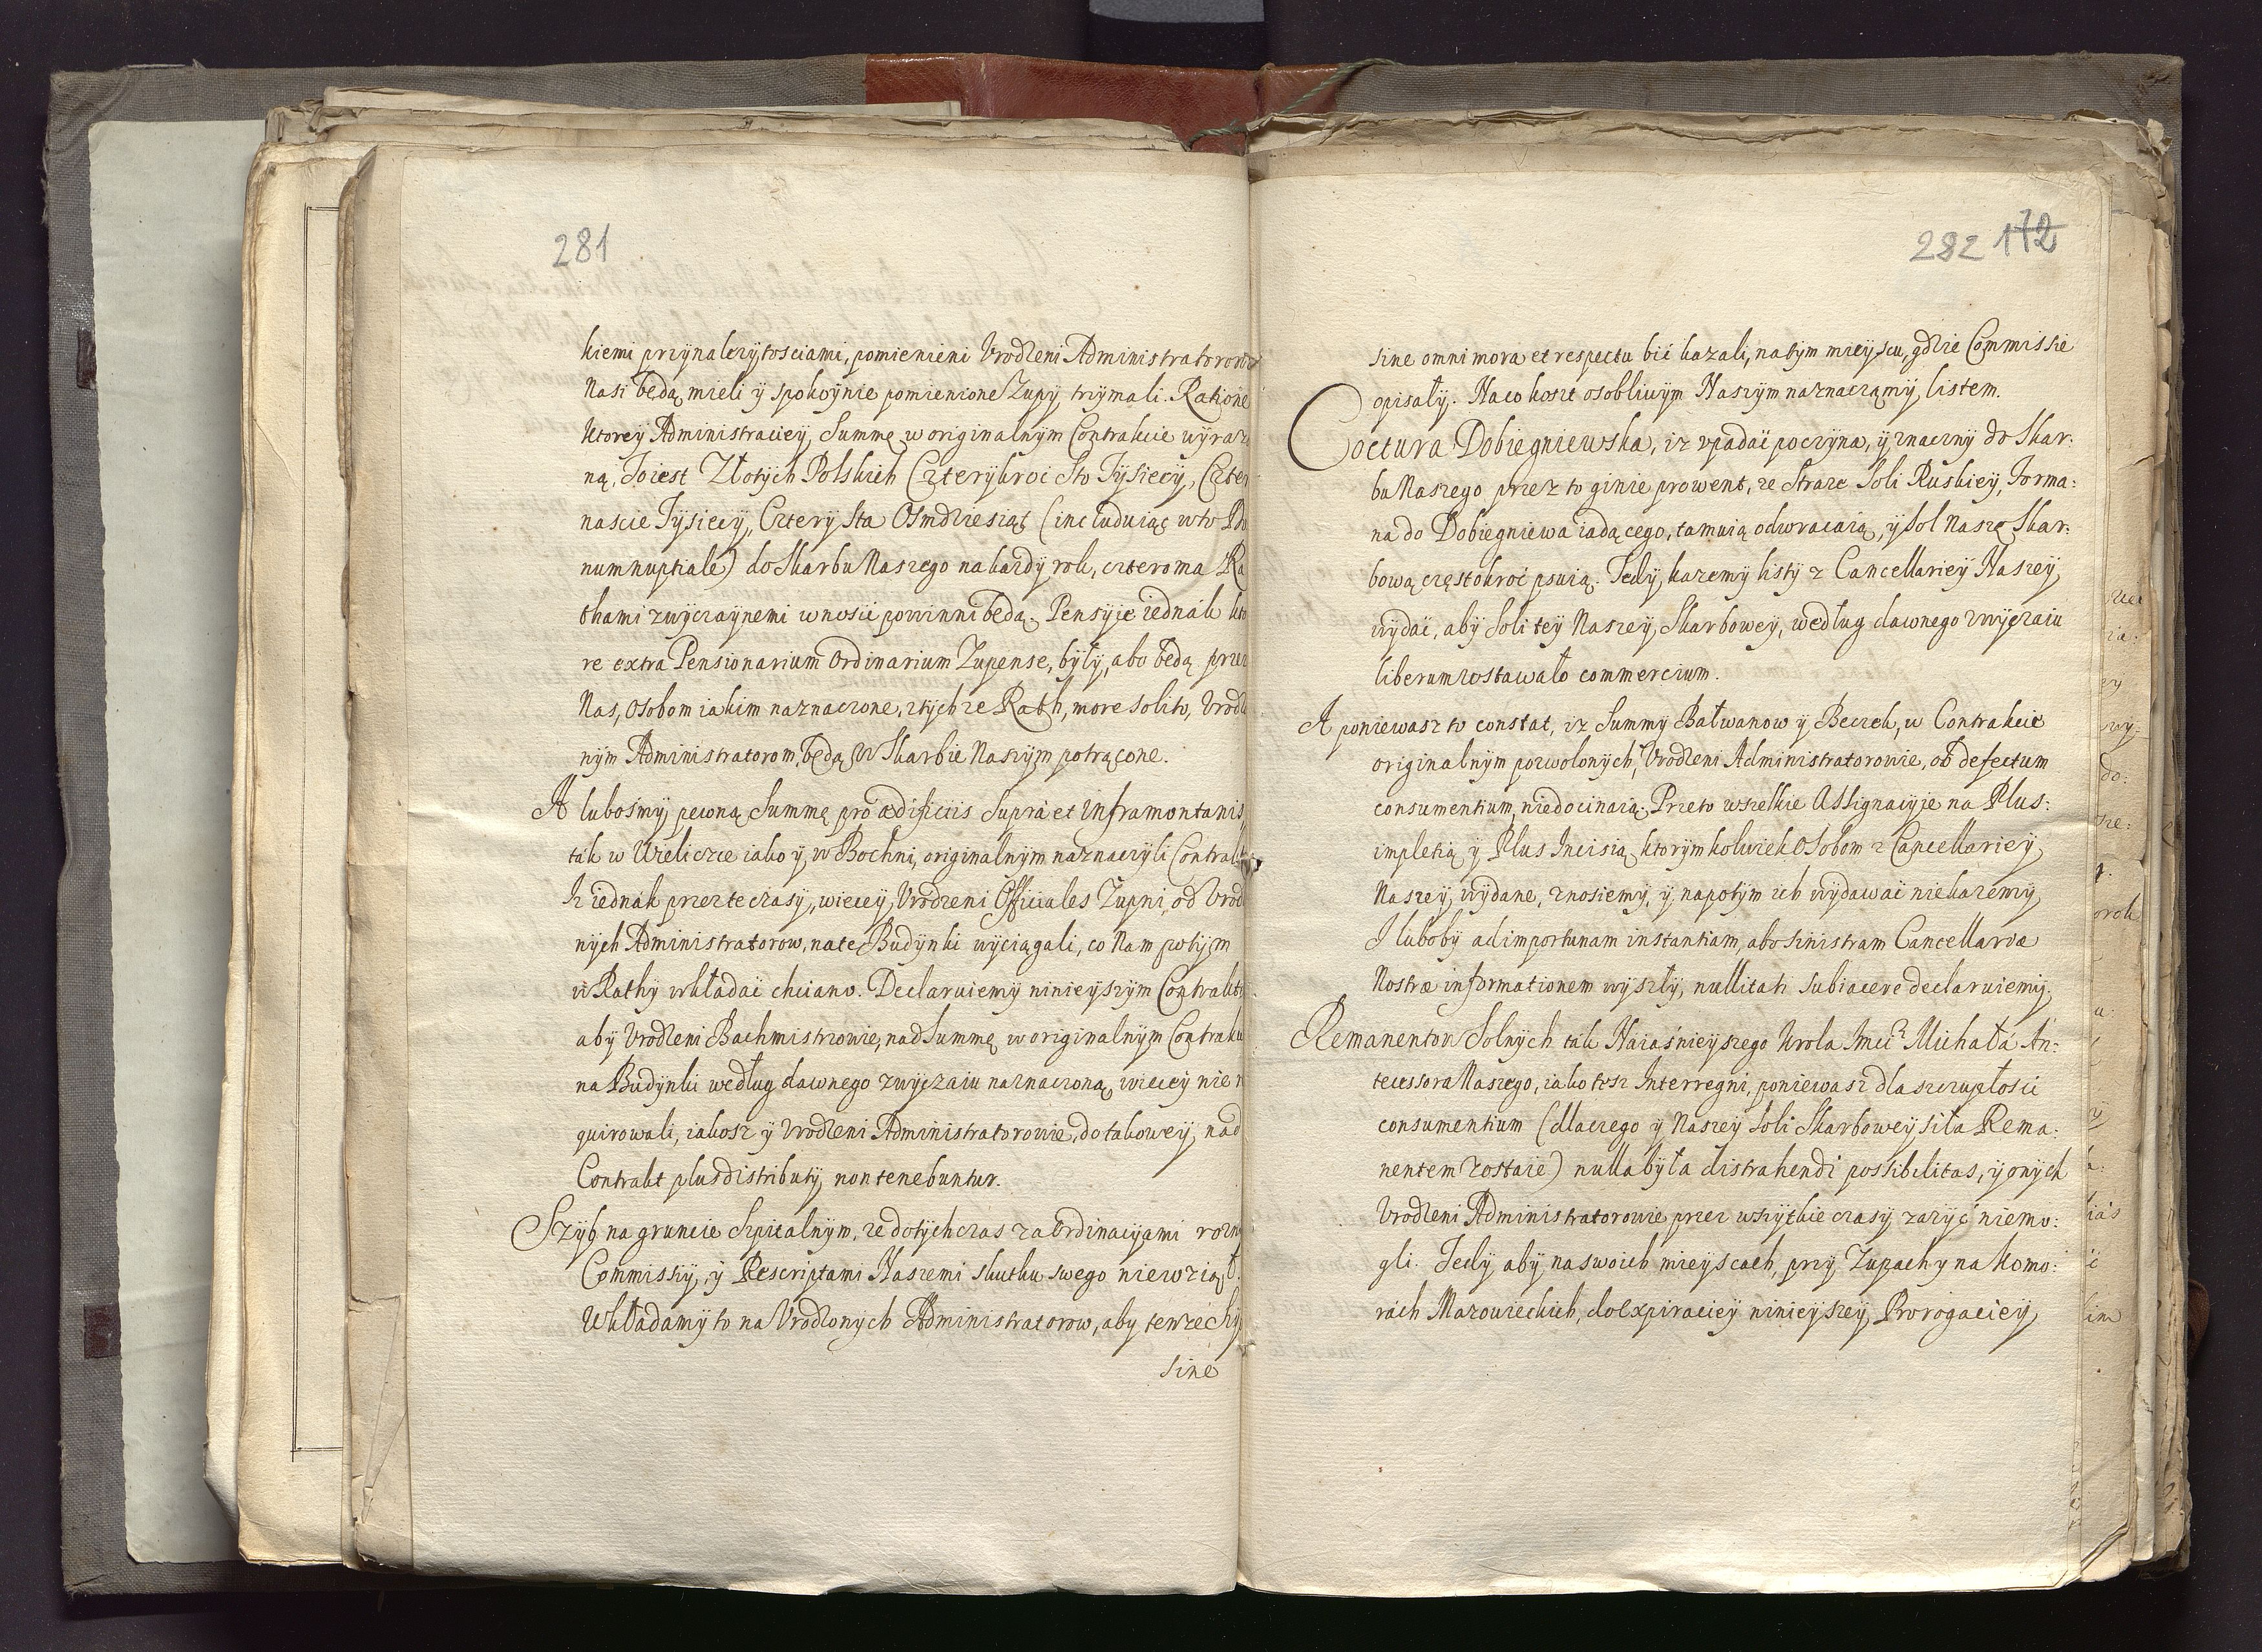 281
kiemi przynalezytosciami, pomienieni Vrodzeni Administratorowie
Nasi będą mieli y spokoynie pomienione Zupy trzymali. Ratione
ktorey Administraciey, Summę w originalnym Contrakcie wyrazo
ną, To iest Złotych Polskich Czterykroc Sto Tysiecy, Czter
nascie Tysiecy, Cztery Sta Osmdziesiąt (includuiąc w to Do
num nuptiale) do Skarbu Naszego na kazdy rok, czteroma Ra
thami zwyczaynemi wnosić powinni będą. Pensyie iednák kto
re extra Pensionarium Ordinarium Zupense, były, abo będą przez
Nas, osobom iakim naznaczone, z tychze Rath, more solito, Vrodzo
nym Administratorom, będą w Skarbie Naszym potrącone.
A lubosmy pewną Summę pro ædificiis supra et inframontanis,
ták w Wieliczce iako y w Bochni, originalnym naznaczyli Contrakt
Iz iednák przez te czasy, wiecey Vrodzeni Officiales Zupni, od Vrod
nych Administratorow, na te Budynki wyciągali, co Nam potym
w Rathy wkładać chciano. Declaruiemy ninieyszym Contrakt
aby Vrodzeni Bachmistrzowie, nad Summę w originalnym Contrak
na Budynki według dawnego zwyczaiu naznaczoną, wiecey nie
quirowali, iakosz y Vrodzeni Administratorowie, do takowey nad
Contrakt plus distributy, non tenebuntur.
Szyb na gruncie Szpitalnym, ze dotychczas za Ordinacyami rozn
Commissiy, y Rescriptami Naszemi skutku swego niewziął.
Wkładamy to na Vrodzonych Administratorow, aby tenze
sine
282 172
sine omni mora et respectu bić kazali, na tym mieyscu, gdzie Commissie
opisały. Na co koszt osobliwym Naszym naznaczamy, listem.
Coctura Dobiegniewska, iz vpadać poczyna, y znaczny do Skar:
bu Naszego przez to ginie prowent, ze Straze Soli Ruskiey, Forma:
na do Dobiegniewa iadącego, tamuią odwracaią, y sol Naszę Skar:
bową częstokroć psuią. Tedy kazemy listy z Cancellariey Naszey
wydać, aby Soli tey Naszey, Skarbowey, według dawnego zwyczaiu
liberum zostawało commercium.
A poniewasz to constat, iz Summy Bałwanow y Beczek, w Contrakcie
originalnym pozwolonych, Vrodzeni Administratorowie, ob defectum
consumentium, niedocinaią. Przeto wszelkie Assignacyie na Plus:
impletią y Plus Incisią ktorymkolwiek Osobom z Cancellariey
Naszey, wydane, znosiemy, y napotym ich wydawać niekazemy
I luboby ad importunam instantiam, abo sinistram Cancellariæ
Nostræ informationem wyszły, nullitati subiacere declaruiemy.
Remanentow Solnych ták Naiaśnieyszego Krola Imci Michałá An:
tecessora Naszego, iako tesz Interregni, poniewasz dla szczupłosci
consumentium (dlaczego y Naszey Soli Skarbowey, siła Rema:
nentem zostaie) nulla była distrahendi possibilitas, y onych
Vrodzeni Administratorowie przez wszytkie czasy zazyć niemo:
gli. Tedy, aby na swoich mieyscach, przy Zupach y na Komo:
rách Mazowieckich, do expiraciey ninieyszey Prorogaciey